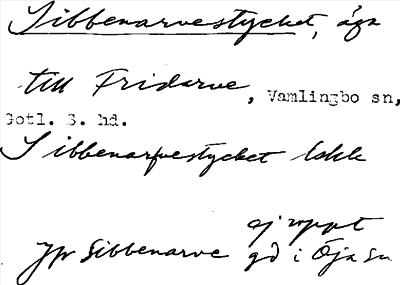 Sibbenarvestycket, äga
till Fridarve, Vamlingbo sn,
Gotl. S. hd.
Sibbenarvestycket lokk
ej uppt
Jfr Sibbenarve gd i Öja sn